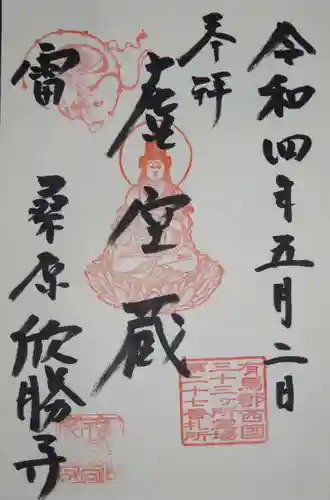 令和四年五月二日
奉拝
虚空蔵
雷
桑原 欣勝寺
有馬郡西国
三十三ヶ所霊場
第二十七番札所